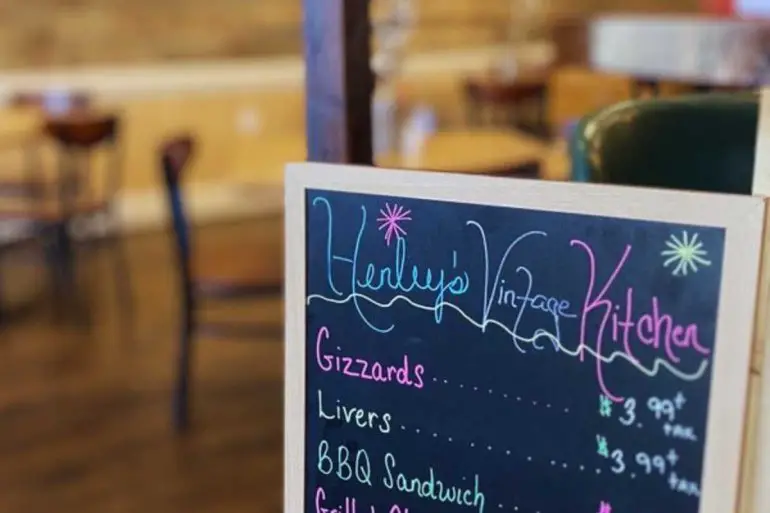 Herley's Vintage Kitchen
Gizzards .......... $3.99 + tax
Livers .............. $3.99 + tax
BBQ Sandwich